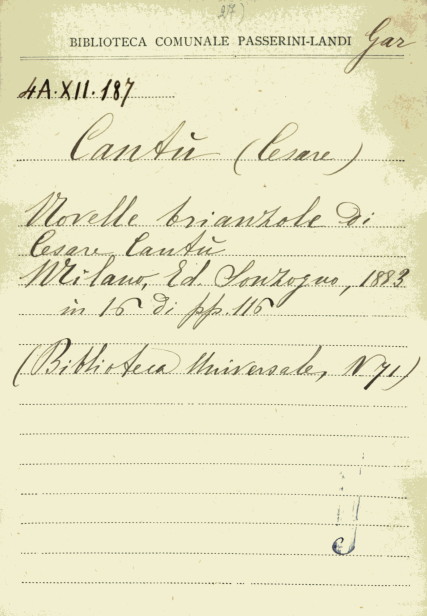 BIBLIOTECA COMUNALE PASSERINI-LANDI
Gar
4A.XII.187
Cantù (Cesare)
Novelle brianzole di
Cesare Cantù
Milano, Ed. Sonzogno, 1883
in 16 di pp. 116
(Biblioteca Universale, N 71)